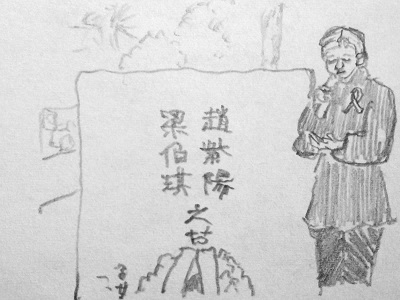 趙紫陽
梁伯琪
之墓